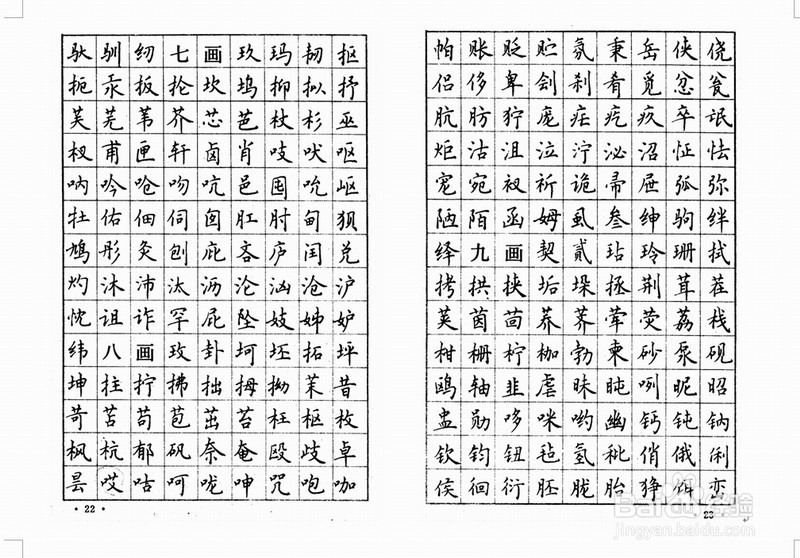 驮驯纫七画玖玛韧抠
扼汞扳抡坎坞抑拟抒
芙芜苇芥芯芭杖杉巫
杈甫匣轩卤肖吱吠呕
呐吟呛吻吭邑囤吮岖
牡佑佃伺囱肛肘甸狈
鸠彤灸刨庇吝庐闰兑
灼沐沛汰沥沦汹沧沪
忱诅诈罕屁坠妓姊妒
纬八画玫卦坷坯拓坪
坤拄拧拂拙拇拗茉昔
苛苫苟苞茁苔枉枢枚
枫杭郁矾奈奄殴歧卓
昙哎咕呵咙呻咒咆咖
· 22 ·
帕账贬贮氛秉岳侠侥
侣侈卑刽刹肴觅忿瓮
肮肪狞庞疟疙疚卒氓
炬沽沮泣泞泌沼怔怯
宠宛衩祈诡帚屉弧弥
陋陌函姆虱叁绅驹绊
绎九画契贰玷玲珊拭
拷拱挟垢垛拯荆茸茬
荚茵茴荞荠荤荧荔栈
柑栅柠枷勃柬砂泵砚
鸥轴韭虐昧盹咧昵昭
盅勋哆咪哟幽钙钝钠
钦钧钮毡氢秕俏俄俐
侯徊衍胚胧胎狰饵峦
23
Baidu经验
jingyan.baidu.com